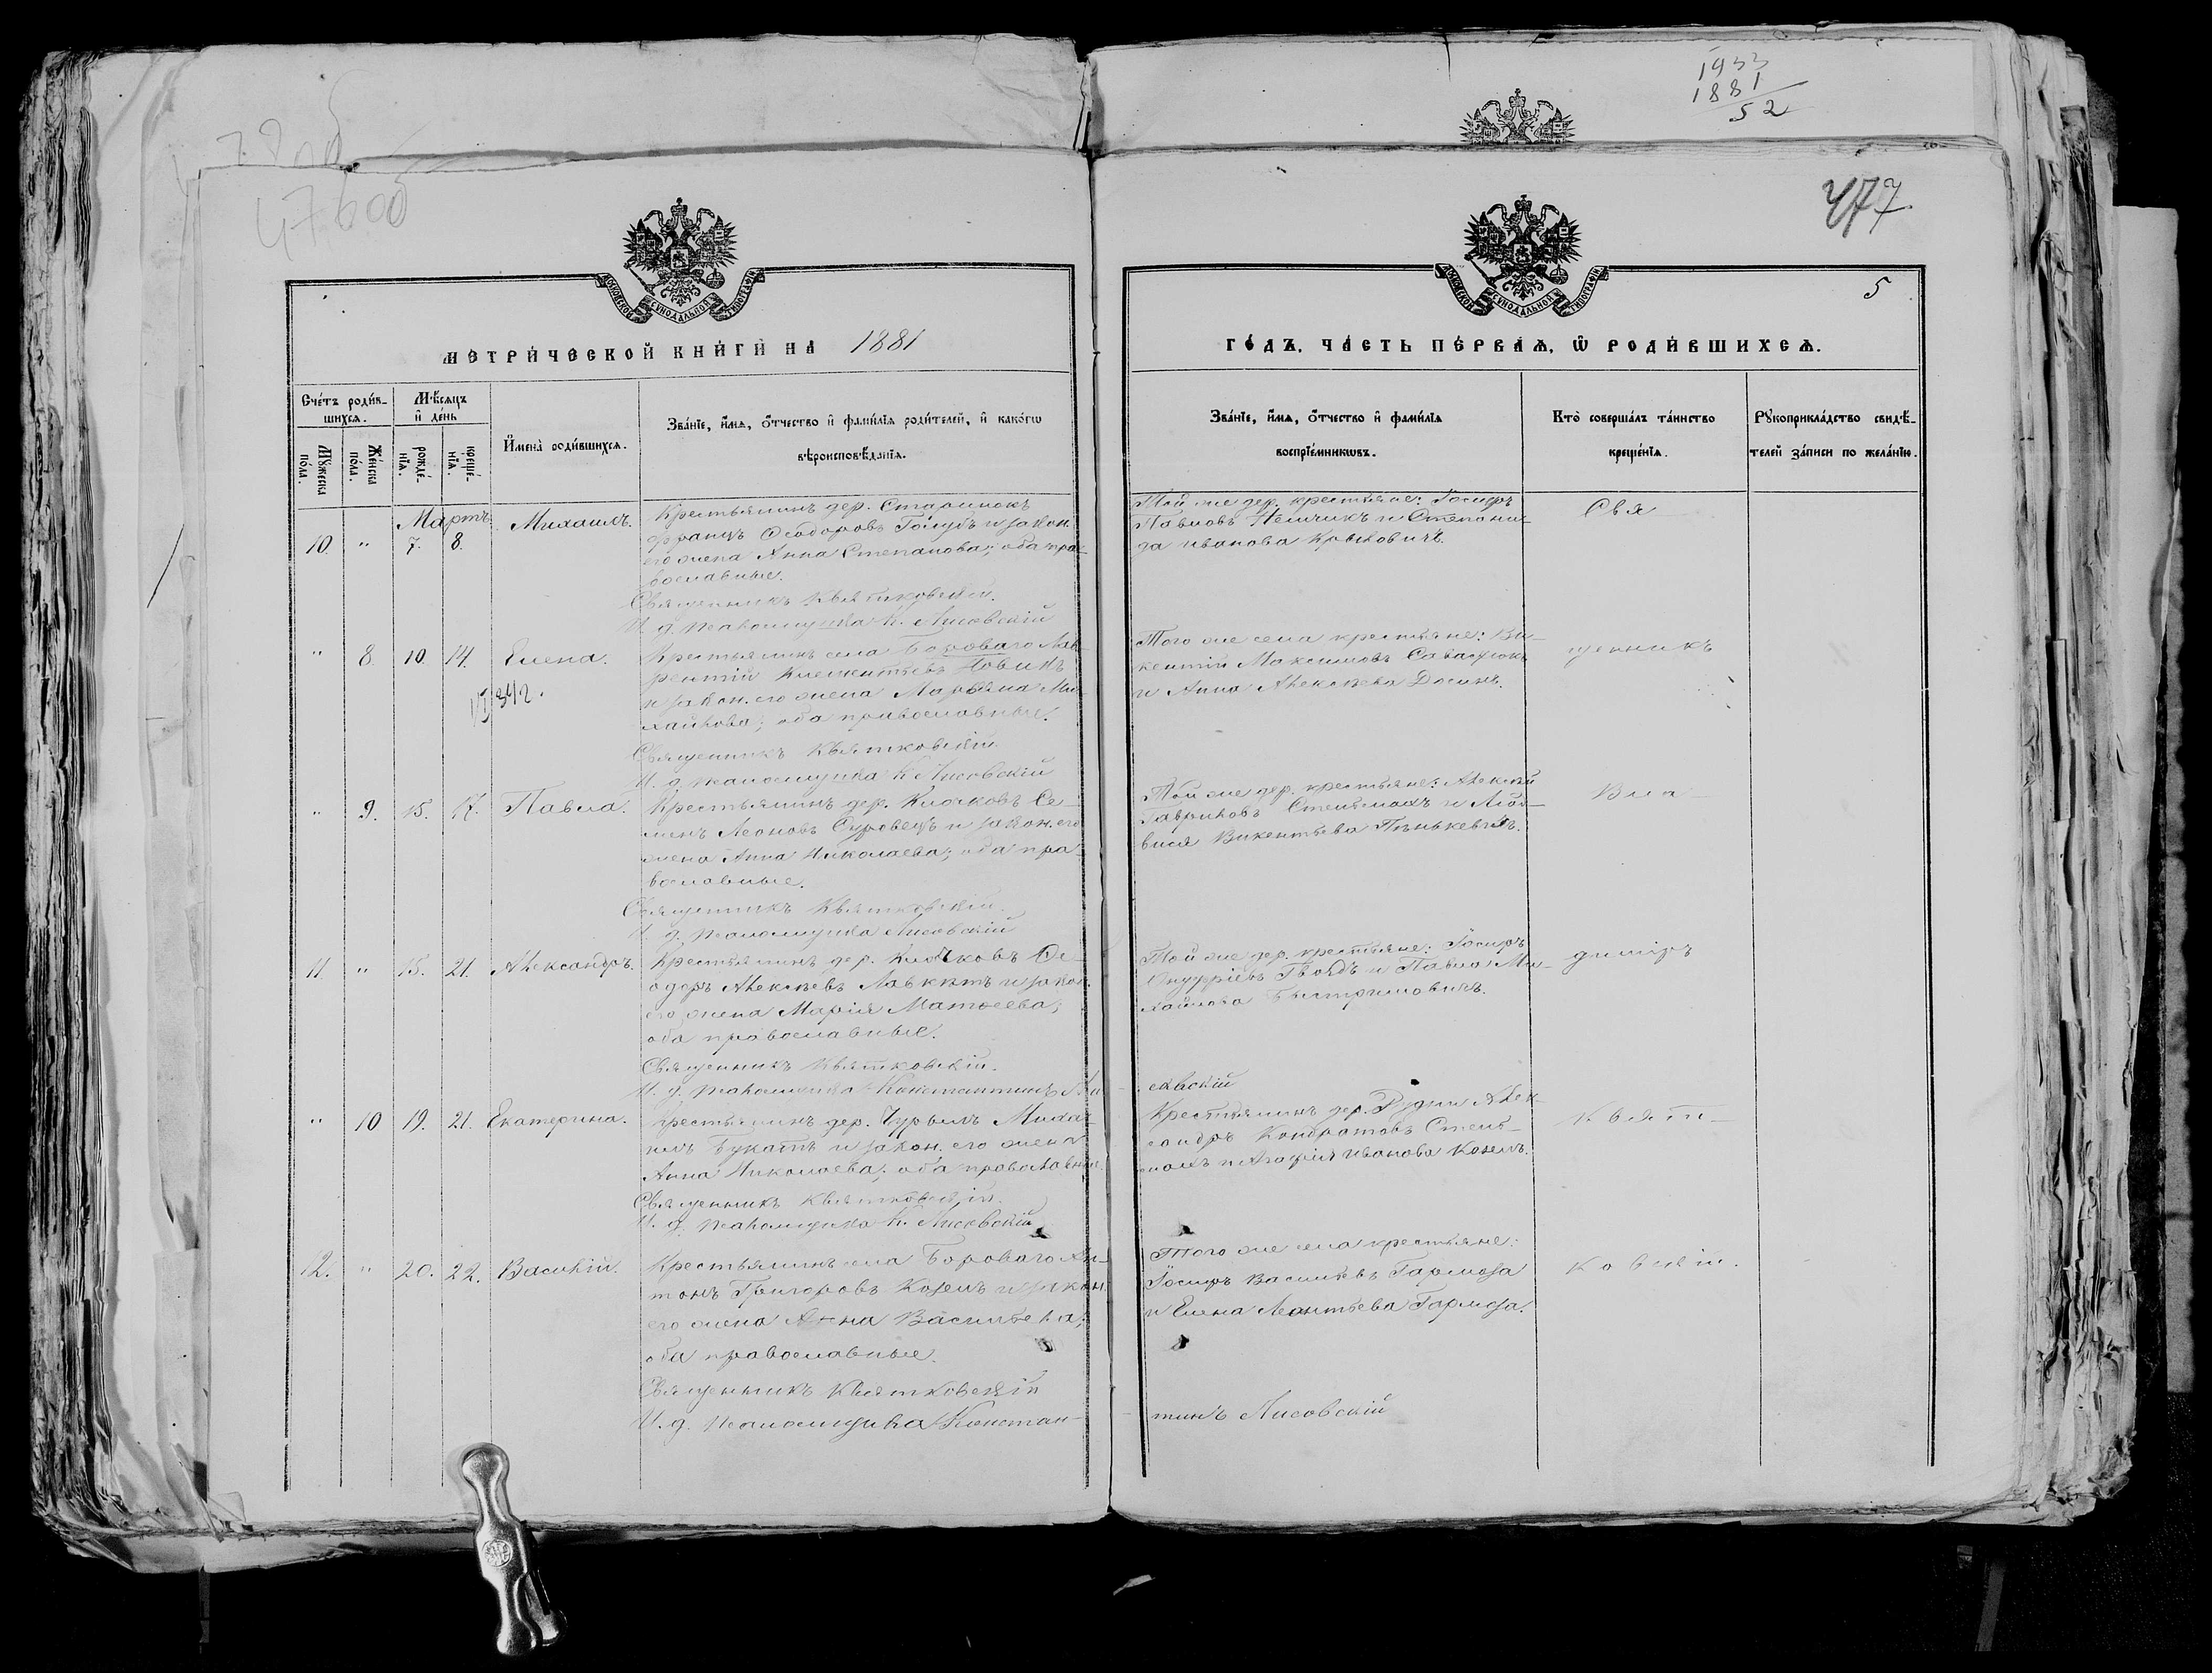 1933
1881
52
47600
477
5
МОСКОВСКОЙ СѴНОДАЛЬНОЙ ТИПОГРАФІИ
МОСКОВСКОЙ СѴНОДАЛЬНОЙ ТИПОГРАФІИ
МЕТРИ́ЧЕСКОЙ КНИ́ГИ НА 1881
ГО́ДЪ, ЧА́СТЬ ПЕ́РВАѦ, Ѡ РОДИ́ВШИХСѦ.
Сче́тъ роди́в-
шихсѧ.
Мꙋжеска по́ла.
Же́нска по́ла.
Мѣ́сѧцъ
и де́нь
рожде́-
нїѧ.
креще́-
нїѧ.
И҆мена̀ роди́вшихсѧ.
Зва́нїе, и҆́мѧ, ѻ҆́тчество и҆ фамѝлїѧ роди́телей, и҆ како́гѡ
вѣроисповѣ́данїѧ.
Зва́нїе, и҆́мѧ, ѻ҆́тчество и҆ фамѝлїѧ
воспрїе́мникѡвъ.
Кто̀ соверша́лъ та́инство
креще́нїѧ.
Рꙋкоприкла́дство свидѣ́-
телей за́писи по жела́нїю.
Мартъ
10. " 7. 8. Михаилъ.
Крестьянинъ дер. Старинокъ
Францъ Ѳеодоровъ Голубъ и закон.
его жена Анна Степанова; оба пра-
вославные.
Священникъ Квятковскій.
И. д. псаломщика К. Лисовскій
Той же дер. крестьяне: Іосифъ
Павловъ и Степани-
да Иванова
Свя
" 8. 10. 14. Елена.
VI 342.
Крестьянинъ села Бороваго Лав-
рентій Климентьевъ Новикъ
и закон. его жена Марьяна Ми-
хайлова; оба православные.
Священникъ Квятковскій.
И. д. псаломщика К. Лисовскій
Того же села крестьяне: Ви-
кентій Максимовъ
и Анна Алексѣева
щенникъ
" 9. 15. 17. Павла.
Крестьянинъ дер. Клочковъ Се-
менъ Леоновъ Суровецъ и закон. его
жена Анна Николаева; оба пра-
вославные.
Священникъ Квятковскій.
И. д. псаломщика Лисовскій
Той же дер. крестьяне: Алексѣй
Гавриловъ Стельмахъ и
Викентьева Пенькевичъ.
Вла
11 " 15. 21. Александръ.
Крестьянинъ дер. Клочковъ Ѳе-
одоръ Алексѣевъ и закон.
его жена Марія Матѳеева;
оба православные.
Священникъ Квятковскій.
И. д. псаломщика Константинъ Ли-
совскій
Той же дер. крестьяне: Іосифъ
Онуфріевъ и Павла Ми-
хайлова Быстримовичъ.
диміръ
" 10 19. 21. Екатерина.
Крестьянинъ дер. Чурилъ Миха-
илъ Букатъ и закон. его жена
Анна Николаева; оба православные.
Священникъ Квятковскій.
И. д. псаломщика К. Лисовскій
Крестьянинъ дер. Рудни Алек-
сандръ Кондратовъ Стель-
махъ и Агафія Иванова Козелъ.
Квят-
12. " 20. 22. Василій.
Крестьянинъ села Бороваго Ан-
тонъ Григоровъ Козелъ и закон.
его жена Анна Васильева;
оба православные.
Священникъ Квятковскій
И. д. псаломщика Констан-
тинъ Лисовскій
Того же села крестьяне:
Іосифъ Васильевъ Гармоза
и Елена Леонтьева Гармоза.
ковскій.